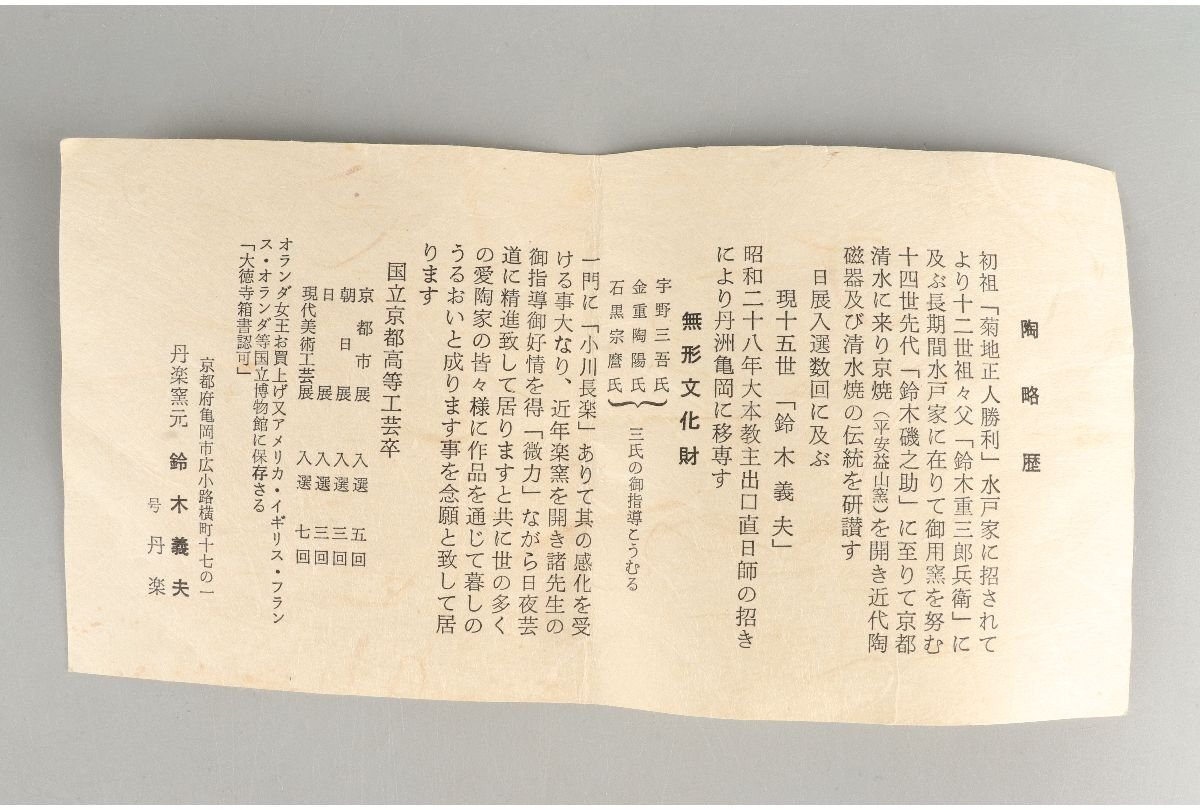 陶略歴
初祖「菊地正人勝利」水戸家に招されて
より十二世祖々父「鈴木重三郎兵衛」に
及ぶ長期間水戸家に在りて御用窯を努む
十四世先代「鈴木磯之助」に至りて京都
清水に来り京焼（平安益山窯）を開き近代陶
磁器及び清水焼の伝統を研讃す
日展入選数回に及ぶ
現十五世「鈴木義夫」
昭和二十八年大本教主出口直日師の招き
により丹洲亀岡に移専す
無形文化財
宇野三吾氏
金重陶陽氏
石黒宗麿氏
三氏の御指導こうむる
一門に「小川長楽」ありて其の感化を受
ける事大なり、近年楽窯を開き諸先生の
御指導御好情を得「微力」ながら日夜芸
道に精進致して居りますと共に世の多く
の愛陶家の皆々様に作品を通じて暮しの
うるおいと成ります事を念願と致して居
ります
国立京都高等工芸卒
京都市展 入選 五回
朝日展 入選 三回
日展 入選 三回
現代美術工芸展 入選 七回
オランダ女王お買上げ又アメリカ・イギリス・フラン
ス・オランダ等国立博物館に保存さる
「大徳寺箱書認可」
京都府亀岡市広小路横町十七の一
丹楽窯元 鈴木義夫
号 丹楽